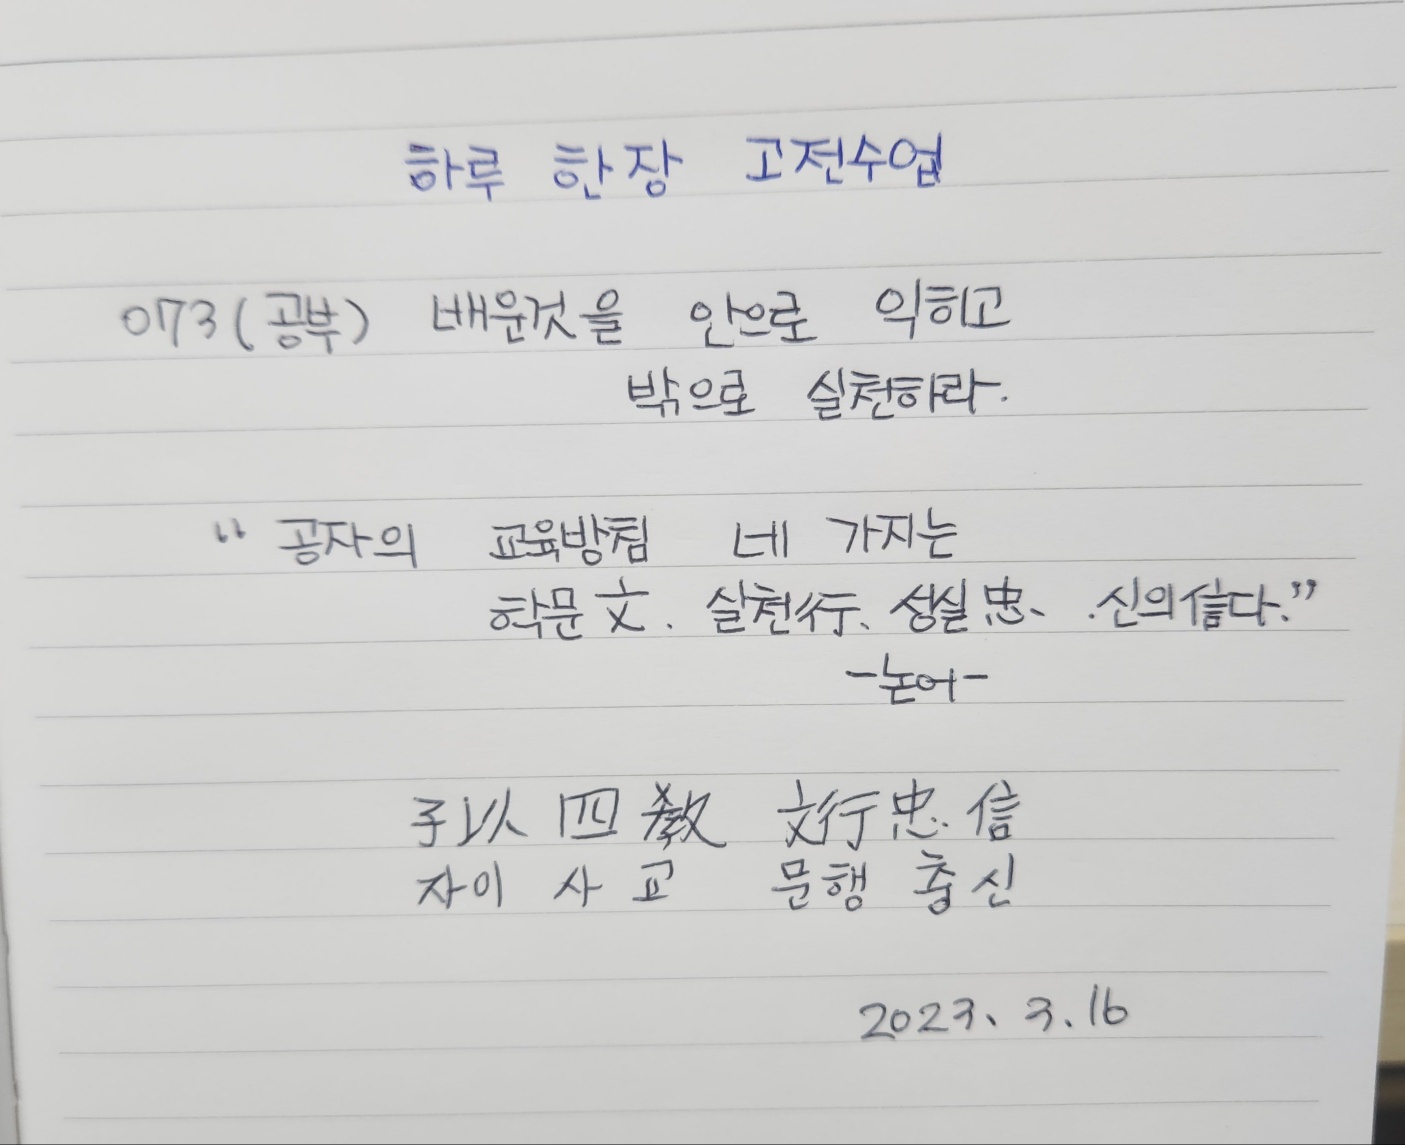 하루 한장 고전수업
073(공부) 배운것을 안으로 익히고
밖으로 실천하라.
“공자의 교육방침 네 가지는
학문文. 실천行、성실忠、.신의信다.”
-논어-
子以四敎 文行忠信
자이 사교 문행 충신
2023、3.16